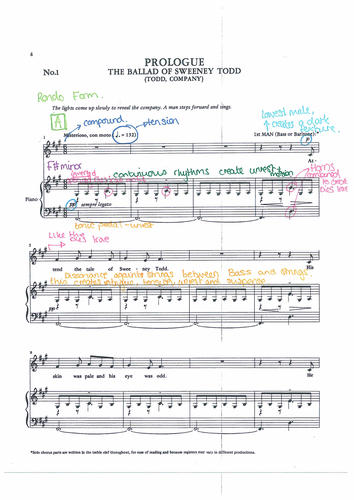 8
PROLOGUE
No.1
THE BALLAD OF SWEENEY TODD
(TODD, COMPANY)
Rondo Form.
The lights come up slowly to reveal the company. A man steps forward and sings.
A
compound
tension
lowest male,
creates a dark
texture.
Misterioso, con moto (♩. = 132)
1st MAN (Bass or Baritone)*
At-
F# minor
continuous rhythms create unrest
Piano
pp sempre legato
tonic pedal - unrest
Like the
dies irae
tend the tale of Swee-ney Todd.
His
Dissonance against between Bass and strings.
this creates tension, unrest and suspense
skin was pale and his eye was odd.
He
*Solo chorus parts are written in the treble clef throughout, for ease of reading and because registers may vary in different productions.